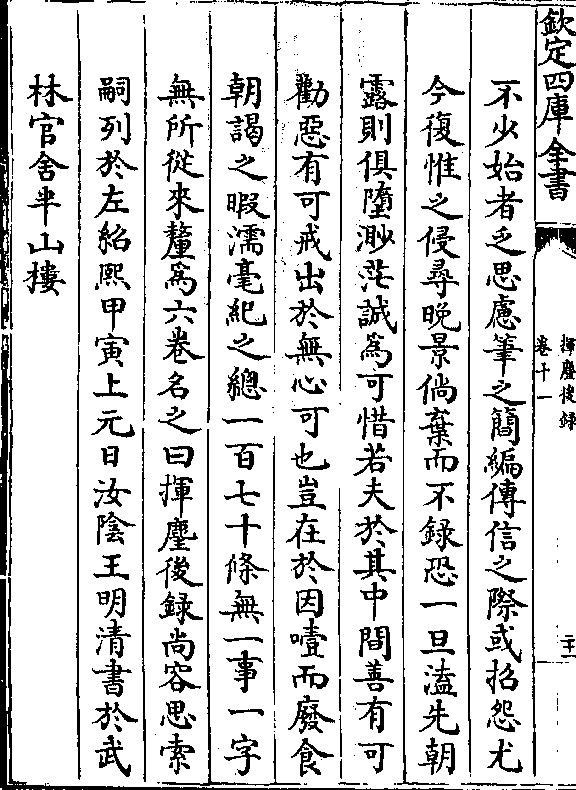 欽定四庫全書
揮麈後錄
卷十一
二十一
不少始者乏思慮筆之簡編傳信之際或招怨尤
今復惟之侵尋晚景倘棄而不錄恐一旦溘先朝
露則俱墮渺茫誠為可惜若夫於其中間善有可
勸惡有可戒出於無心可也豈在於因噎而廢食
朝謁之暇濡毫紀之總一百七十條無一事一字
無所從來釐為六卷名之曰揮麈後錄尚容思索
嗣列於左紹熙甲寅上元日汝陰王明清書於武
林官舍半山樓